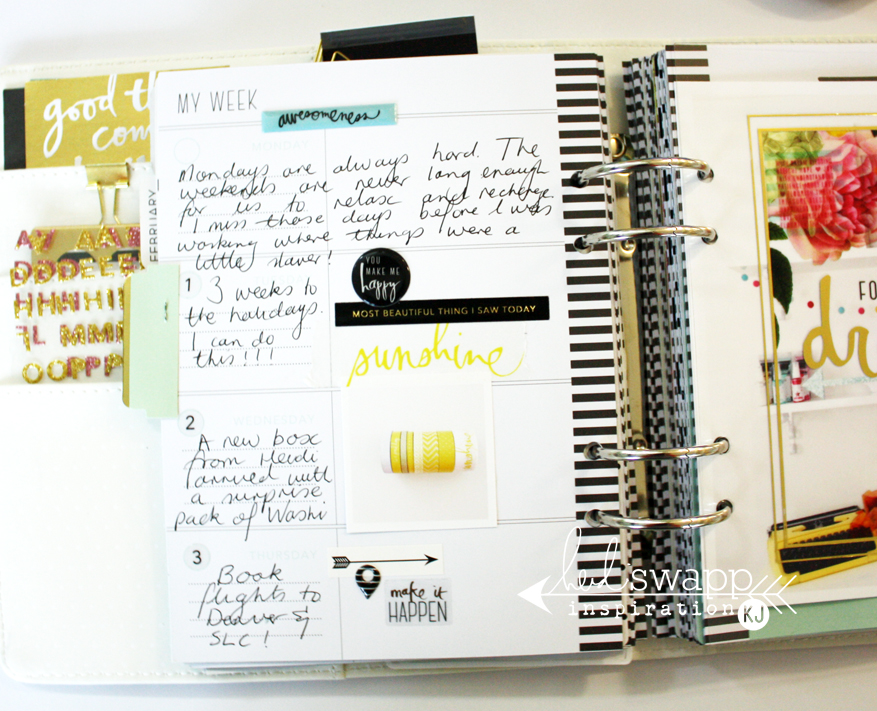 good th
com
MY WEEK
awesomeness
MONDAY
FEBRUARY
Mondays are always hard. The
weekends are never long enough
for us to relax and recharge.
I miss those days before I was
working where things were a
little slower!
1
3 weeks to
the holidays.
I can do
this!!!
YOU
MAKE ME
happy
MOST BEAUTIFUL THING I SAW TODAY
sunshine
2
WEDNESDAY
A new box
from Heidi
arrived with
a surprise
pack of Washi
3
THURSDAY
Book
flights to
Denver &
SLC!
make it
HAPPEN
FO
dr
heidi swapp
inspiration
KJ